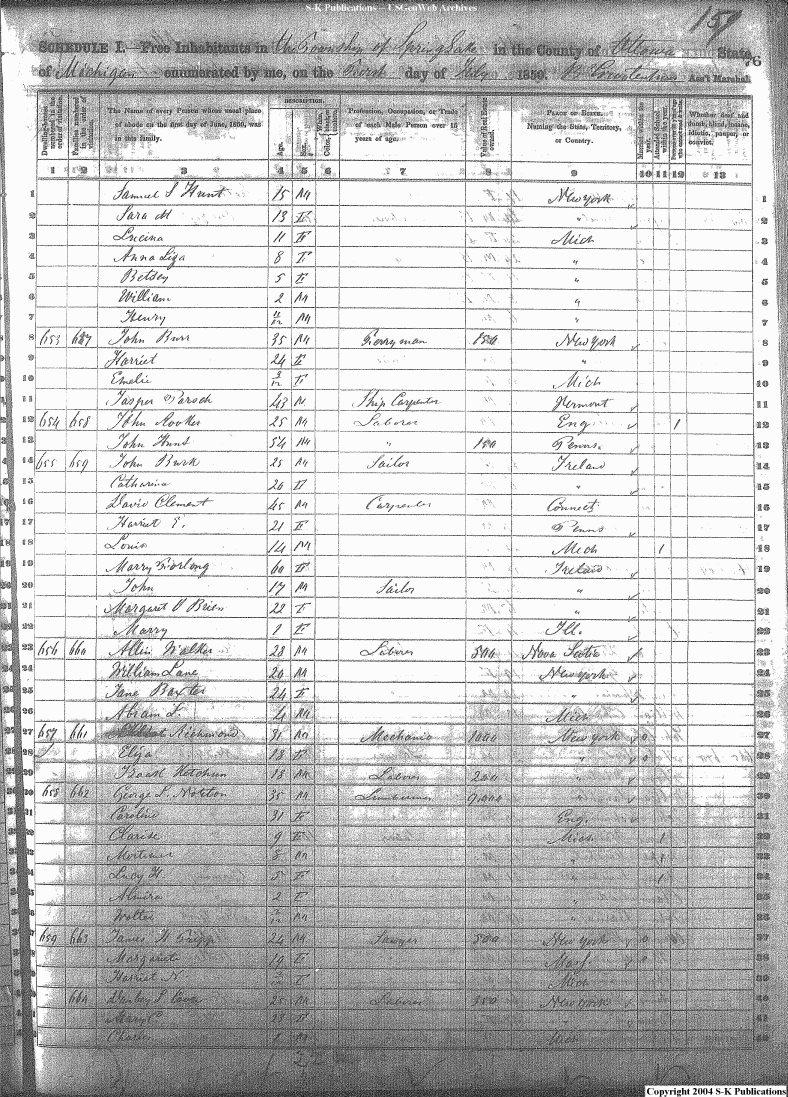 S-K Publications – USGenWeb Archives
159
SCHEDULE I.—Free Inhabitants in the Township of Spring Lake in the County of Ottawa State
76
of Michigan enumerated by me, on the First day of July 1850. Ass't Marshal.
DESCRIPTION.
Dwelling-houses numbered in the order of visitation. Families numbered in the order of visitation. The Name of every Person whose usual place of abode on the first day of June, 1850, was in this family. Age. Sex. Color, Profession, Occupation, or Trade of each Male Person over 15 years of age. Value of Real Estate owned. PLACE OF BIRTH. Naming the State, Territory, or Country. Married within the year. Attended School within the year. Whether deaf and dumb, blind, insane, idiotic, pauper, or convict.
1 2 3 4 5 6 7 8 9 10 11 12 13
1 Samuel S Hunt 15 M New York 1
2 Sara M 13 F " 2
3 Lucina 11 F Mich 3
4 Anna Liza 8 F " 4
5 Betsey 5 F " 5
6 William 2 M " 6
7 Henry 11/12 M " 7
8 653 657 John Burr 35 M Ferryman 150 New York 8
9 Harriet 24 F " 9
10 Emelie 3/12 F Mich 10
11 Jasper 43 M Ship Carpenter Vermont 11
12 654 658 John Rooker 25 M Laborer Eng 1 12
13 John Hunt 54 M " 150 Penns. 13
14 655 659 John Burk 25 M Sailor Ireland 14
15 Catharina 20 F " 15
16 David Clement 45 M Carpenter Connect. 16
17 Harriet E. 21 F Penns 17
18 Louis 14 M Mich 1 18
19 Marry 60 F Ireland 19
20 John 17 M Sailor " 20
21 Margaret O Brien 22 F " 21
22 Marry 1 F Ill. 22
23 656 660 Allen Walker 28 M Laborer 500 Nova Scotia 23
24 William Lane 20 M New York 24
25 Jane Baxter 24 F " 25
26 Abram L. 4 M Mich 26
27 657 661 Richmond 31 M Mechanic 1000 New York 27
28 Eliza 18 F " 28
29 Ketchum M Laborer 200 " 29
30 658 662 George L. Norton 35 M Lumberman New York 30
Caroline 31 F Eng.
Clarise 9 F Mich 1
Mortimer 8 M " 1
Lucy H. 5 F " 1
Almira 2 F "
Wolter M "
659 663 James W 24 M Sawyer 500 New York 37
Margarete 19 F Mass. 38
Harriet N. F Mich 39
664 25 M Laborer 350 New York 40
Mary C. 23 F " 41
Charles 1 M Mich
Copyright 2004 S-K Publications